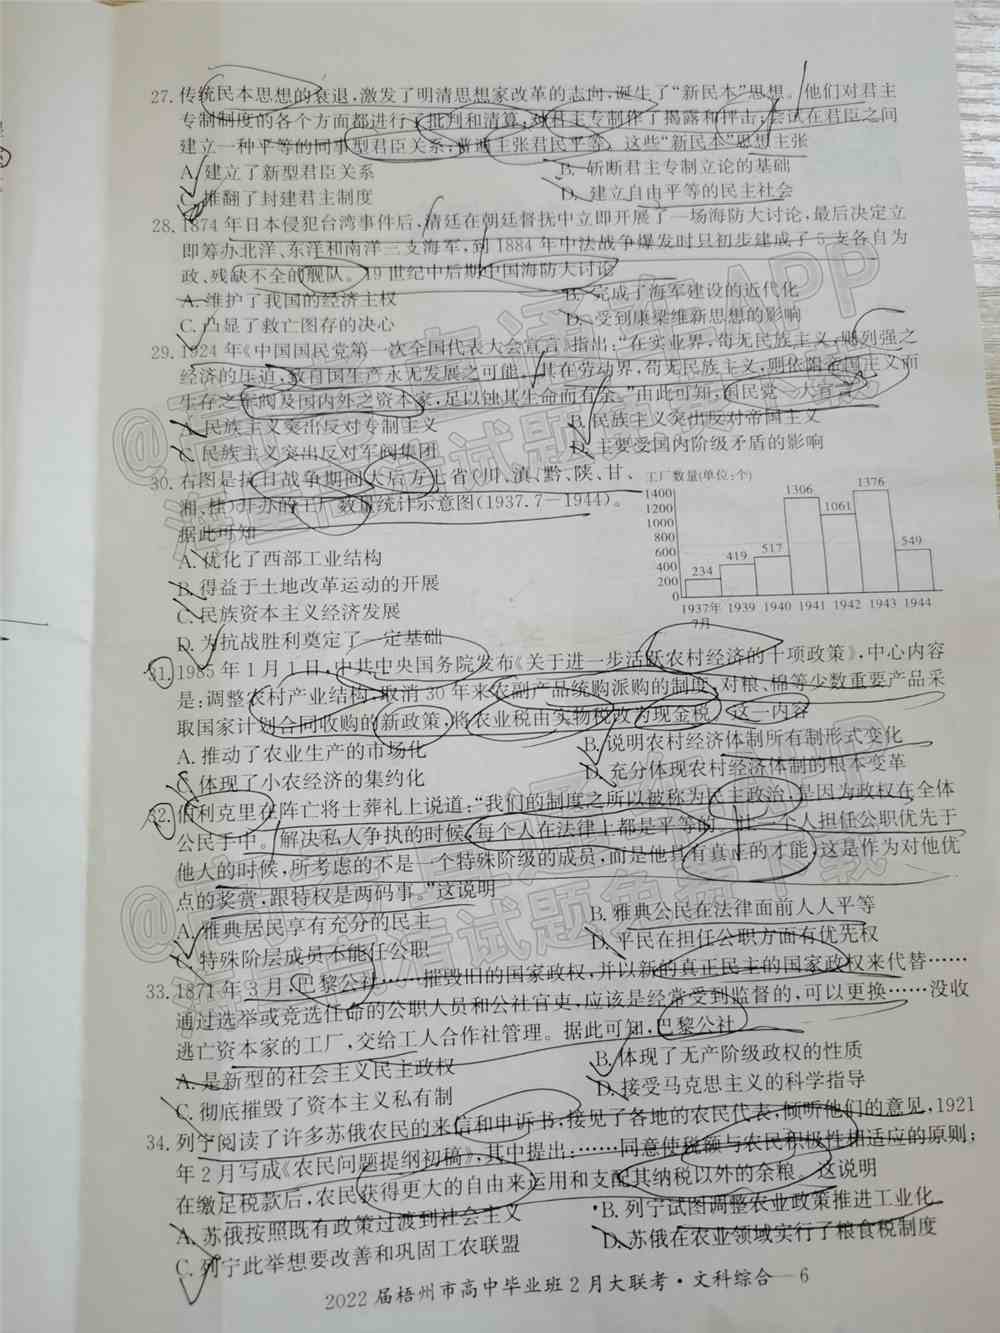 27. 传统民本思想的衰退,激发了明清思想家改革的志向,诞生了“新民本”思想。他们对君主
专制制度的各个方面都进行了批判和清算,对君主专制作了揭露和抨击;尝试在君臣之间
建立一种平等的同事型君臣关系;普遍主张君民平等。这些“新民本”思想主张
A. 建立了新型君臣关系 B. 斩断君主专制立论的基础
C. 推翻了封建君主制度 D. 建立自由平等的民主社会
28. 1874年日本侵犯台湾事件后,清廷在朝廷督抚中立即开展了一场海防大讨论,最后决定立
即筹办北洋、东洋和南洋三支海军,到1884年中法战争爆发时只初步建成了5支各自为
政、残缺不全的舰队。19世纪中后期中国海防大讨论
A. 维护了我国的经济主权 B. 完成了海军建设的近代化
C. 凸显了救亡图存的决心 D. 受到康梁维新思想的影响
29. 1924年《中国国民党第一次全国代表大会宣言》指出:“在实业界,苟无民族主义,则列强之
经济的压迫,致自国生产永无发展之可能。其在劳动界,苟无民族主义,则依附帝国主义而
生存之军阀及国内外之资本家,足以蚀其生命而有余。”由此可知,国民党一大宣言
A. 民族主义突出反对专制主义 B. 民族主义突出反对帝国主义
C. 民族主义突出反对军阀集团 D. 主要受国内阶级矛盾的影响
30. 右图是抗日战争期间大后方七省(川、滇、黔、陕、甘、
湘、桂)开办的工厂数量统计示意图(1937.7—1944)。
据此可知
A. 优化了西部工业结构
B. 得益于土地改革运动的开展
C. 民族资本主义经济发展
D. 为抗战胜利奠定了一定基础
工厂数量(单位:个)
1400
1200
1000
800
600
400
200
0
234 419 517 1306 1061 1376 549
1937年 1939 1940 1941 1942 1943 1944
7月
31. 1985年1月1日,中共中央国务院发布《关于进一步活跃农村经济的十项政策》,中心内容
是:调整农村产业结构,取消30年来农副产品统购派购的制度,对粮、棉等少数重要产品采
取国家计划合同收购的新政策,将农业税由实物税改为现金税。这一内容
A. 推动了农业生产的市场化 B. 说明农村经济体制所有制形式变化
C. 体现了小农经济的集约化 D. 充分体现农村经济体制的根本变革
32. 伯利克里在阵亡将士葬礼上说道:“我们的制度之所以被称为民主政治,是因为政权在全体
公民手中。解决私人争执的时候,每个人在法律上都是平等的。让一个人担任公职优先于
他人的时候,所考虑的不是一个特殊阶级的成员,而是他具有真正的才能,这是作为对他优
点的奖赏,跟特权是两码事。”这说明
A. 雅典居民享有充分的民主 B. 雅典公民在法律面前人人平等
C. 特殊阶层成员不能任公职 D. 平民在担任公职方面有优先权
33. 1871年3月,巴黎公社……摧毁旧的国家政权,并以新的真正民主的国家政权来代替……
通过选举或竞选任命的公职人员和公社官吏,应该是经常受到监督的,可以更换……没收
逃亡资本家的工厂,交给工人合作社管理。据此可知,巴黎公社
A. 是新型的社会主义民主政权 B. 体现了无产阶级政权的性质
C. 彻底摧毁了资本主义私有制 D. 接受马克思主义的科学指导
34. 列宁阅读了许多苏俄农民的来信和申诉书,接见了各地的农民代表,倾听他们的意见,1921
年2月写成《农民问题提纲初稿》,其中提出:……同意使税额与农民积极性相适应的原则;
在缴足税款后,农民获得更大的自由来运用和支配其纳税以外的余粮。这说明
A. 苏俄按照既有政策过渡到社会主义 B. 列宁试图调整农业政策推进工业化
C. 列宁此举想要改善和巩固工农联盟 D. 苏俄在农业领域实行了粮食税制度
2022届梧州市高中毕业班2月大联考·文科综合—6